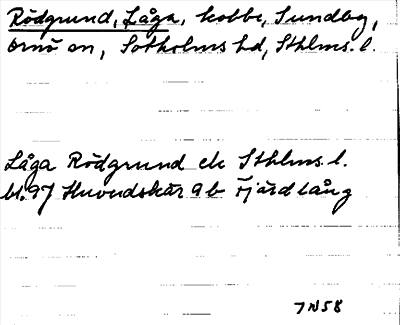 Rödgrund, Låga, kobbe, Sundby,
Ornö sn, Sotholms hd, Sthlms. l.
Låga Rödgrund ek Sthlms. l.
bl. 97 Huvudskär 9b Fjärdlång
7N58